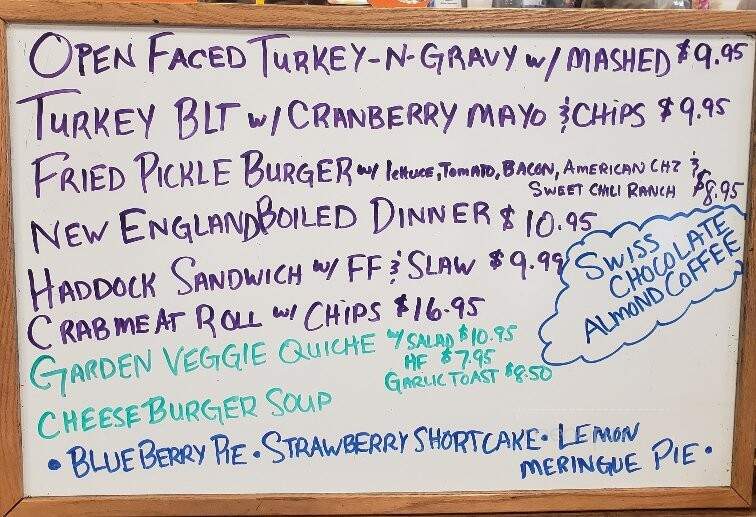 OPEN FACED TURKEY-N-GRAVY w/ MASHED $9.95
TURKEY BLT w/ CRANBERRY MAYO & CHIPS $9.95
FRIED PICKLE BURGER w/ lettuce, Tomato, BACON, AMERICAN CHZ &
SWEET CHILI RANCH $8.95
NEW ENGLAND BOILED DINNER $10.95
HADDOCK SANDWICH w/ FF & SLAW $9.99
CRABMEAT ROLL w/ CHIPS $16.95
SWISS
CHOCOLATE
ALMOND COFFEE
GARDEN VEGGIE QUICHE w/ SALAD $10.95
HF $7.95
GARLIC TOAST $8.50
CHEESEBURGER SOUP
• BLUEBERRY PIE • STRAWBERRY SHORTCAKE • LEMON
MERINGUE PIE •